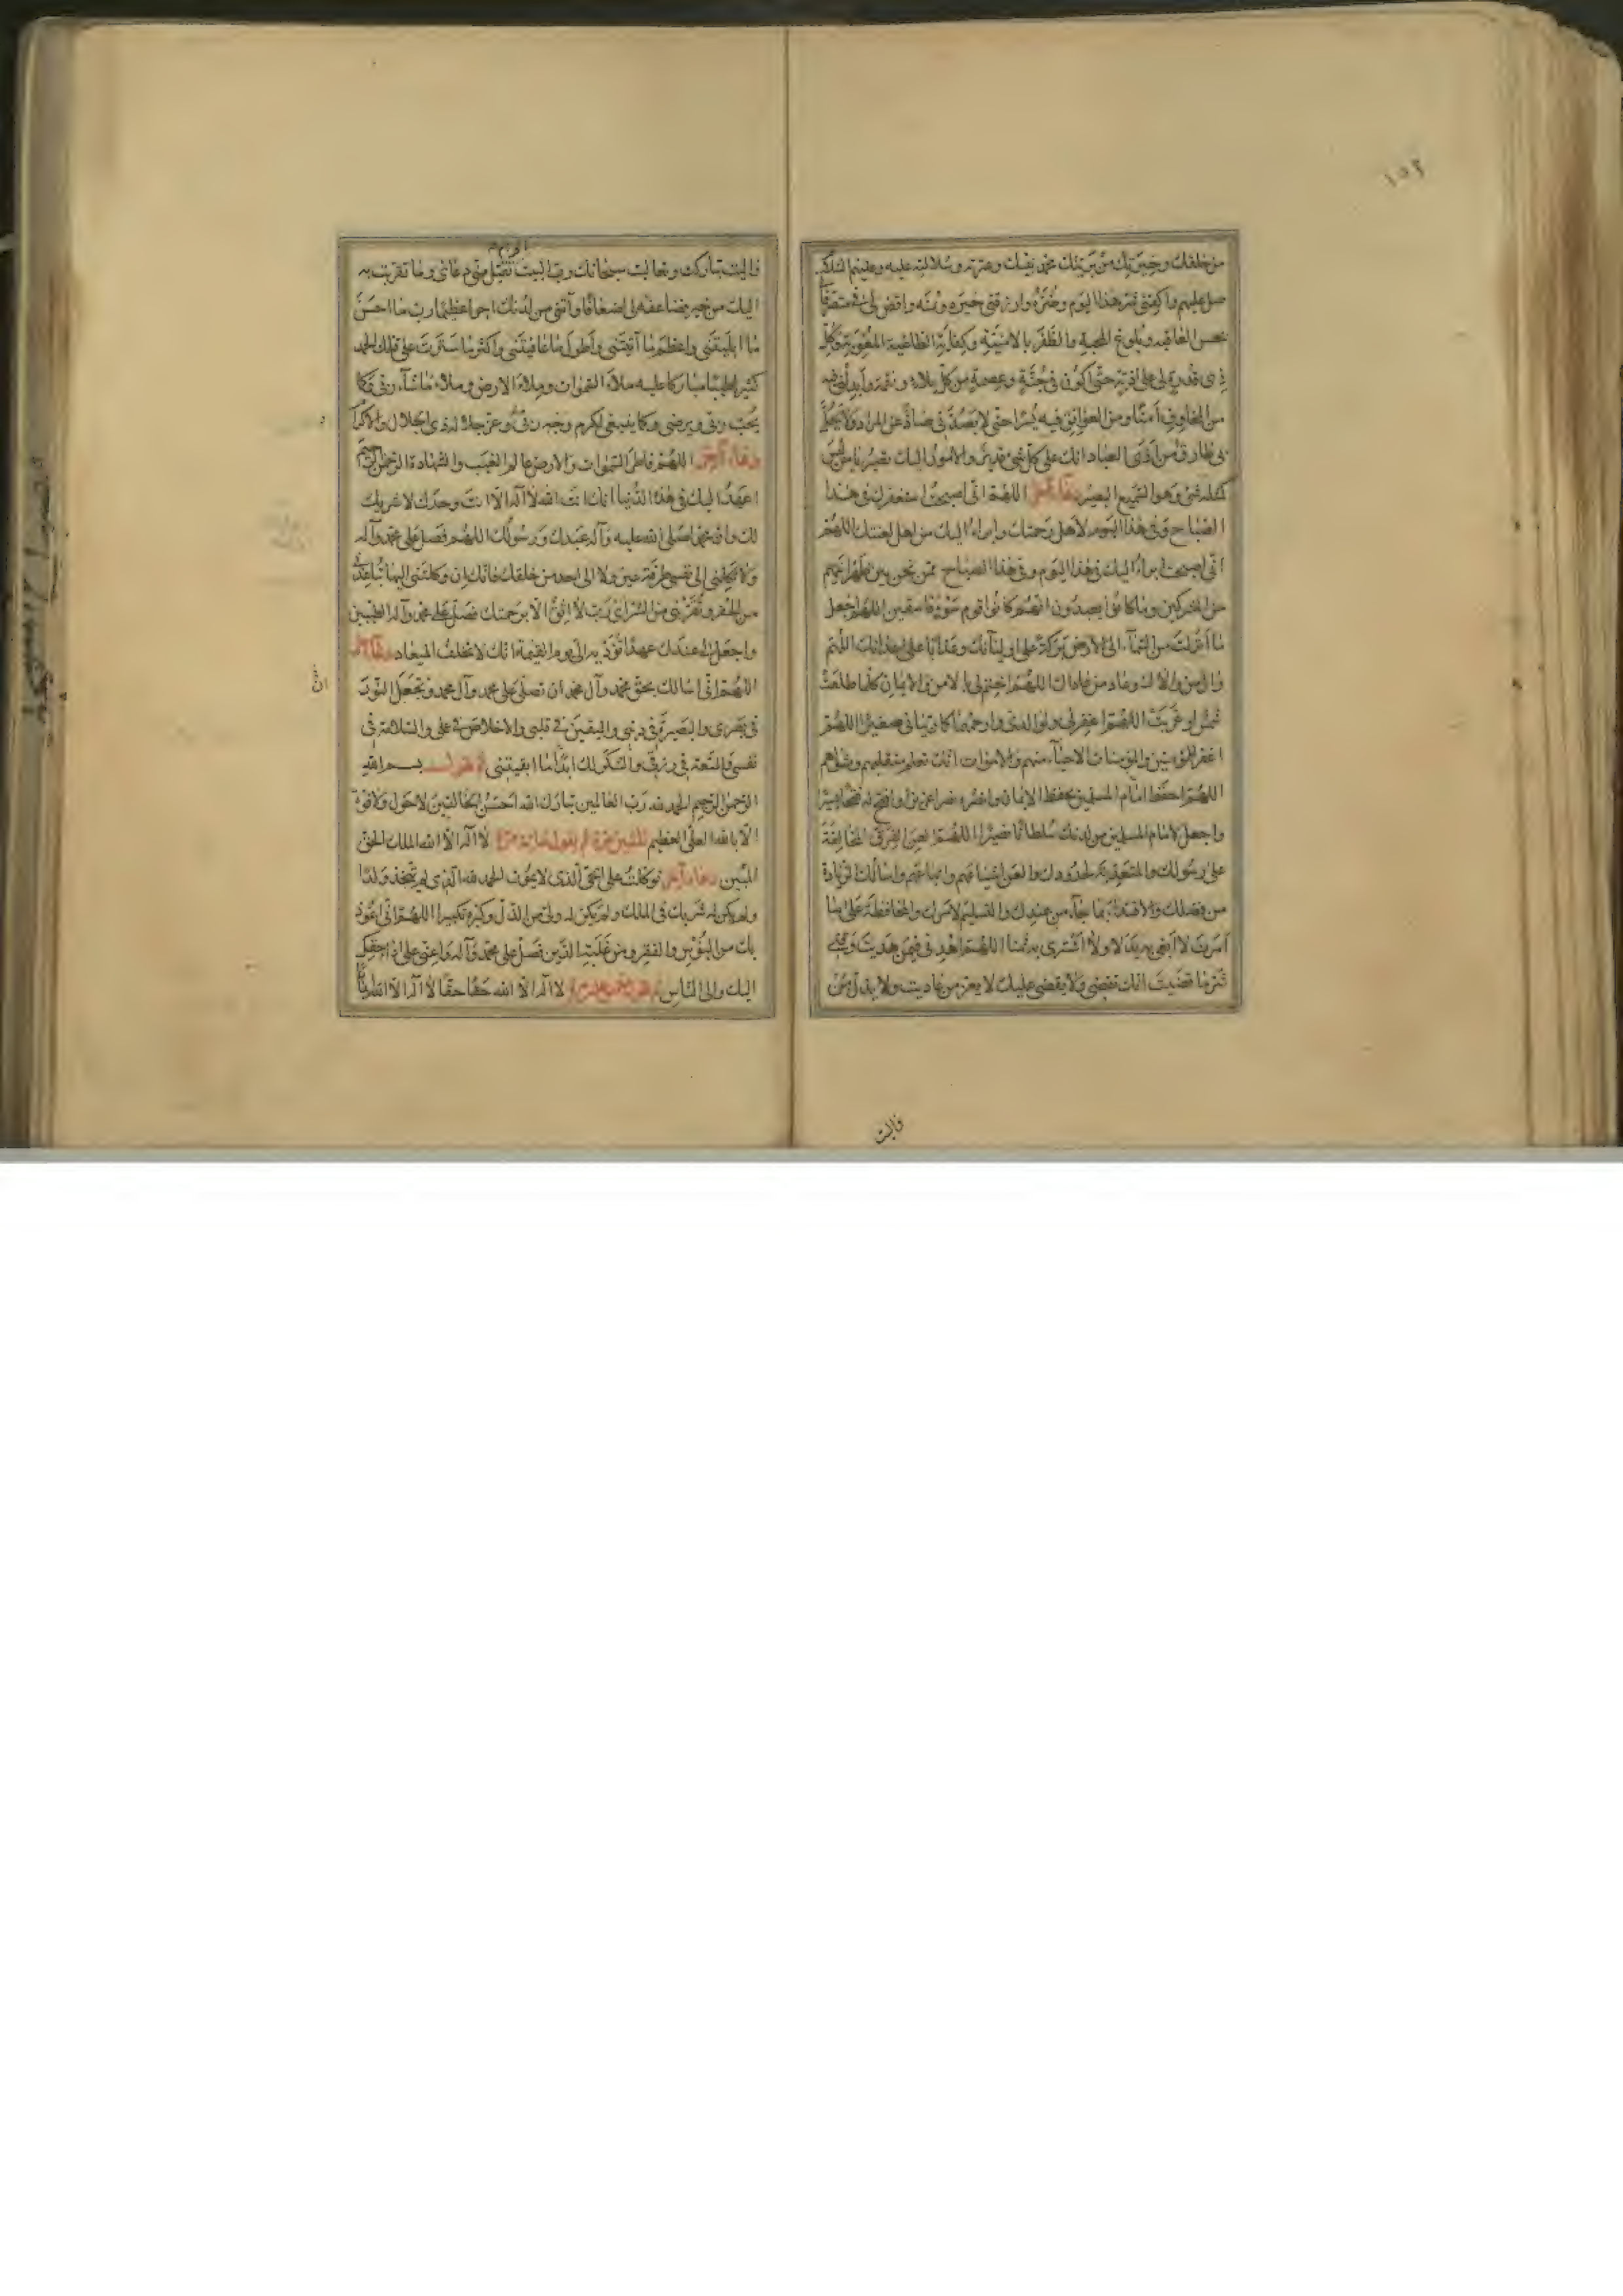 ١٥٢
من خلقك وخيرتك من بريتك محمد نبيك وعترته وسلالته عليه وعليهم السلام
صل عليهم واكفنى شر هذا اليوم وضره وارزقنى خيره ويمنه واقض لى فى متصرفاتى
بحسن العاقبه وبلوغ المحبة والظفر بالامنية وكفاية الطاغية المغوية وكل
ذى قدرة لى على اذية حتى اكون فى جنة وعصمة من كل بلاء ونقمة وابدلنى فيه
من المخاوف امنا ومن العوائق فيه يسرا حتى لا يصدنى صاد عن المراد ولا يحل
بى طارق من اذى العباد انك على كل شئ قدير والامور اليك تصير يا من ليس
كمثله شئ وهو السميع البصير دعاء آخر اللهم انى اصبحت استغفرك فى هذا
الصباح وفى هذا اليوم لاهل رحمتك وابراء اليك من اهل لعنتك اللهم
انى اصبحت ابراء اليك فى هذا اليوم وفى هذا الصباح ممن نحن بين ظهرانيهم
من المشركين وما كانوا يعبدون انهم كانوا قوم سوء فاسقين اللهم اجعل
ما انزلت من السماء الى الارض بركة على اوليائك وعذابا على اعدائك اللهم
وال من والاك وعاد من عاداك اللهم اختم لى بالامن والايمان كلما طلعت
شمس او غربت اللهم اغفر لى ولوالدى وارحمهما كما ربيانى صغيرا اللهم
اغفر للمؤمنين والمؤمنات الاحياء منهم والاموات انك تعلم متقلبهم ومثواهم
اللهم احفظ امام المسلمين بحفظ الايمان وانصره نصرا عزيزا وافتح له فتحا يسيرا
واجعل لامام المسلمين من لدنك سلطانا نصيرا اللهم العن الفرق المخالفة
على رسولك والمتعدية لحدودك والعن اشياعهم واتباعهم واسالك الزيادة
من فضلك والاقتداء بما جاء من عندك والتسليم لامرك والمحافظة على ما
امرت لا ابغى به بدلا ولا اشترى به ثمنا اللهم اهدنى فيمن هديت وقنى
شر ما قضيت انك تقضى ولا يقضى عليك لا يعز من عاديت ولا يذل من
واليت
واليت تباركت وتعاليت سبحانك رب البيت تقبل منى دعائى وما تقربت به
اليك من خير فضاعفه لى اضعافا وآتنى من لدنك اجرا عظيما رب ما احسن
ما ابليتنى واعظم ما آتيتنى واطول ما عافيتنى واكثر ما سترت على فلك الحمد
كثيرا طيبا مباركا عليه ملاء السموات وملاء الارض وملاء ما شاء ربى كما
يحب ربى ويرضى وكما ينبغى لكرم وجه ربى وعز جلاله ذى الجلال والاكرام
دعاء آخر اللهم فاطر السموات والارض عالم الغيب والشهادة الرحمن الرحيم
اعهد اليك فى هذه الدنيا انك انت الله لا اله الا انت وحدك لا شريك
لك وان محمدا صلى الله عليه وآله عبدك ورسولك اللهم فصل على محمد وآله
ولا تكلنى الى نفسى طرفة عين ولا الى احد من خلقك فانك ان وكلتنى اليها تباعدنى
من الخير وتقربنى من الشر اى رب لا اثق الا برحمتك فصل على محمد وآله الطيبين
واجعل لى عندك عهدا تؤديه الى يوم القيمة انك لا تخلف الميعاد دعاء آخر
اللهم انى اسالك بحق محمد وآل محمد ان تصلى على محمد وآل محمد وتجعل النور
فى بصرى والبصيرة فى دينى واليقين فى قلبى والاخلاص فى عملى والسلامة فى
نفسى والسعة فى رزقى والشكر لك ابدا ما ابقيتنى ثم تقول بسم الله
الرحمن الرحيم الحمد لله رب العالمين تبارك الله احسن الخالقين لا حول ولا قوة
الا بالله العلى العظيم ثلثين مرة ثم يقول مائة مرة لا اله الا الله الملك الحق
المبين دعاء آخر توكلت على الحى الذى لا يموت الحمد لله الذى لم يتخذ ولدا
ولم يكن له شريك فى الملك ولم يكن له ولى من الذل وكبره تكبيرا اللهم انى اعوذ
بك من البؤس والفقر ومن غلبة الدين فصل على محمد وآله واعنى على اداء حقك
اليك والى الناس لا اله الا الله حقا حقا لا اله الا الله